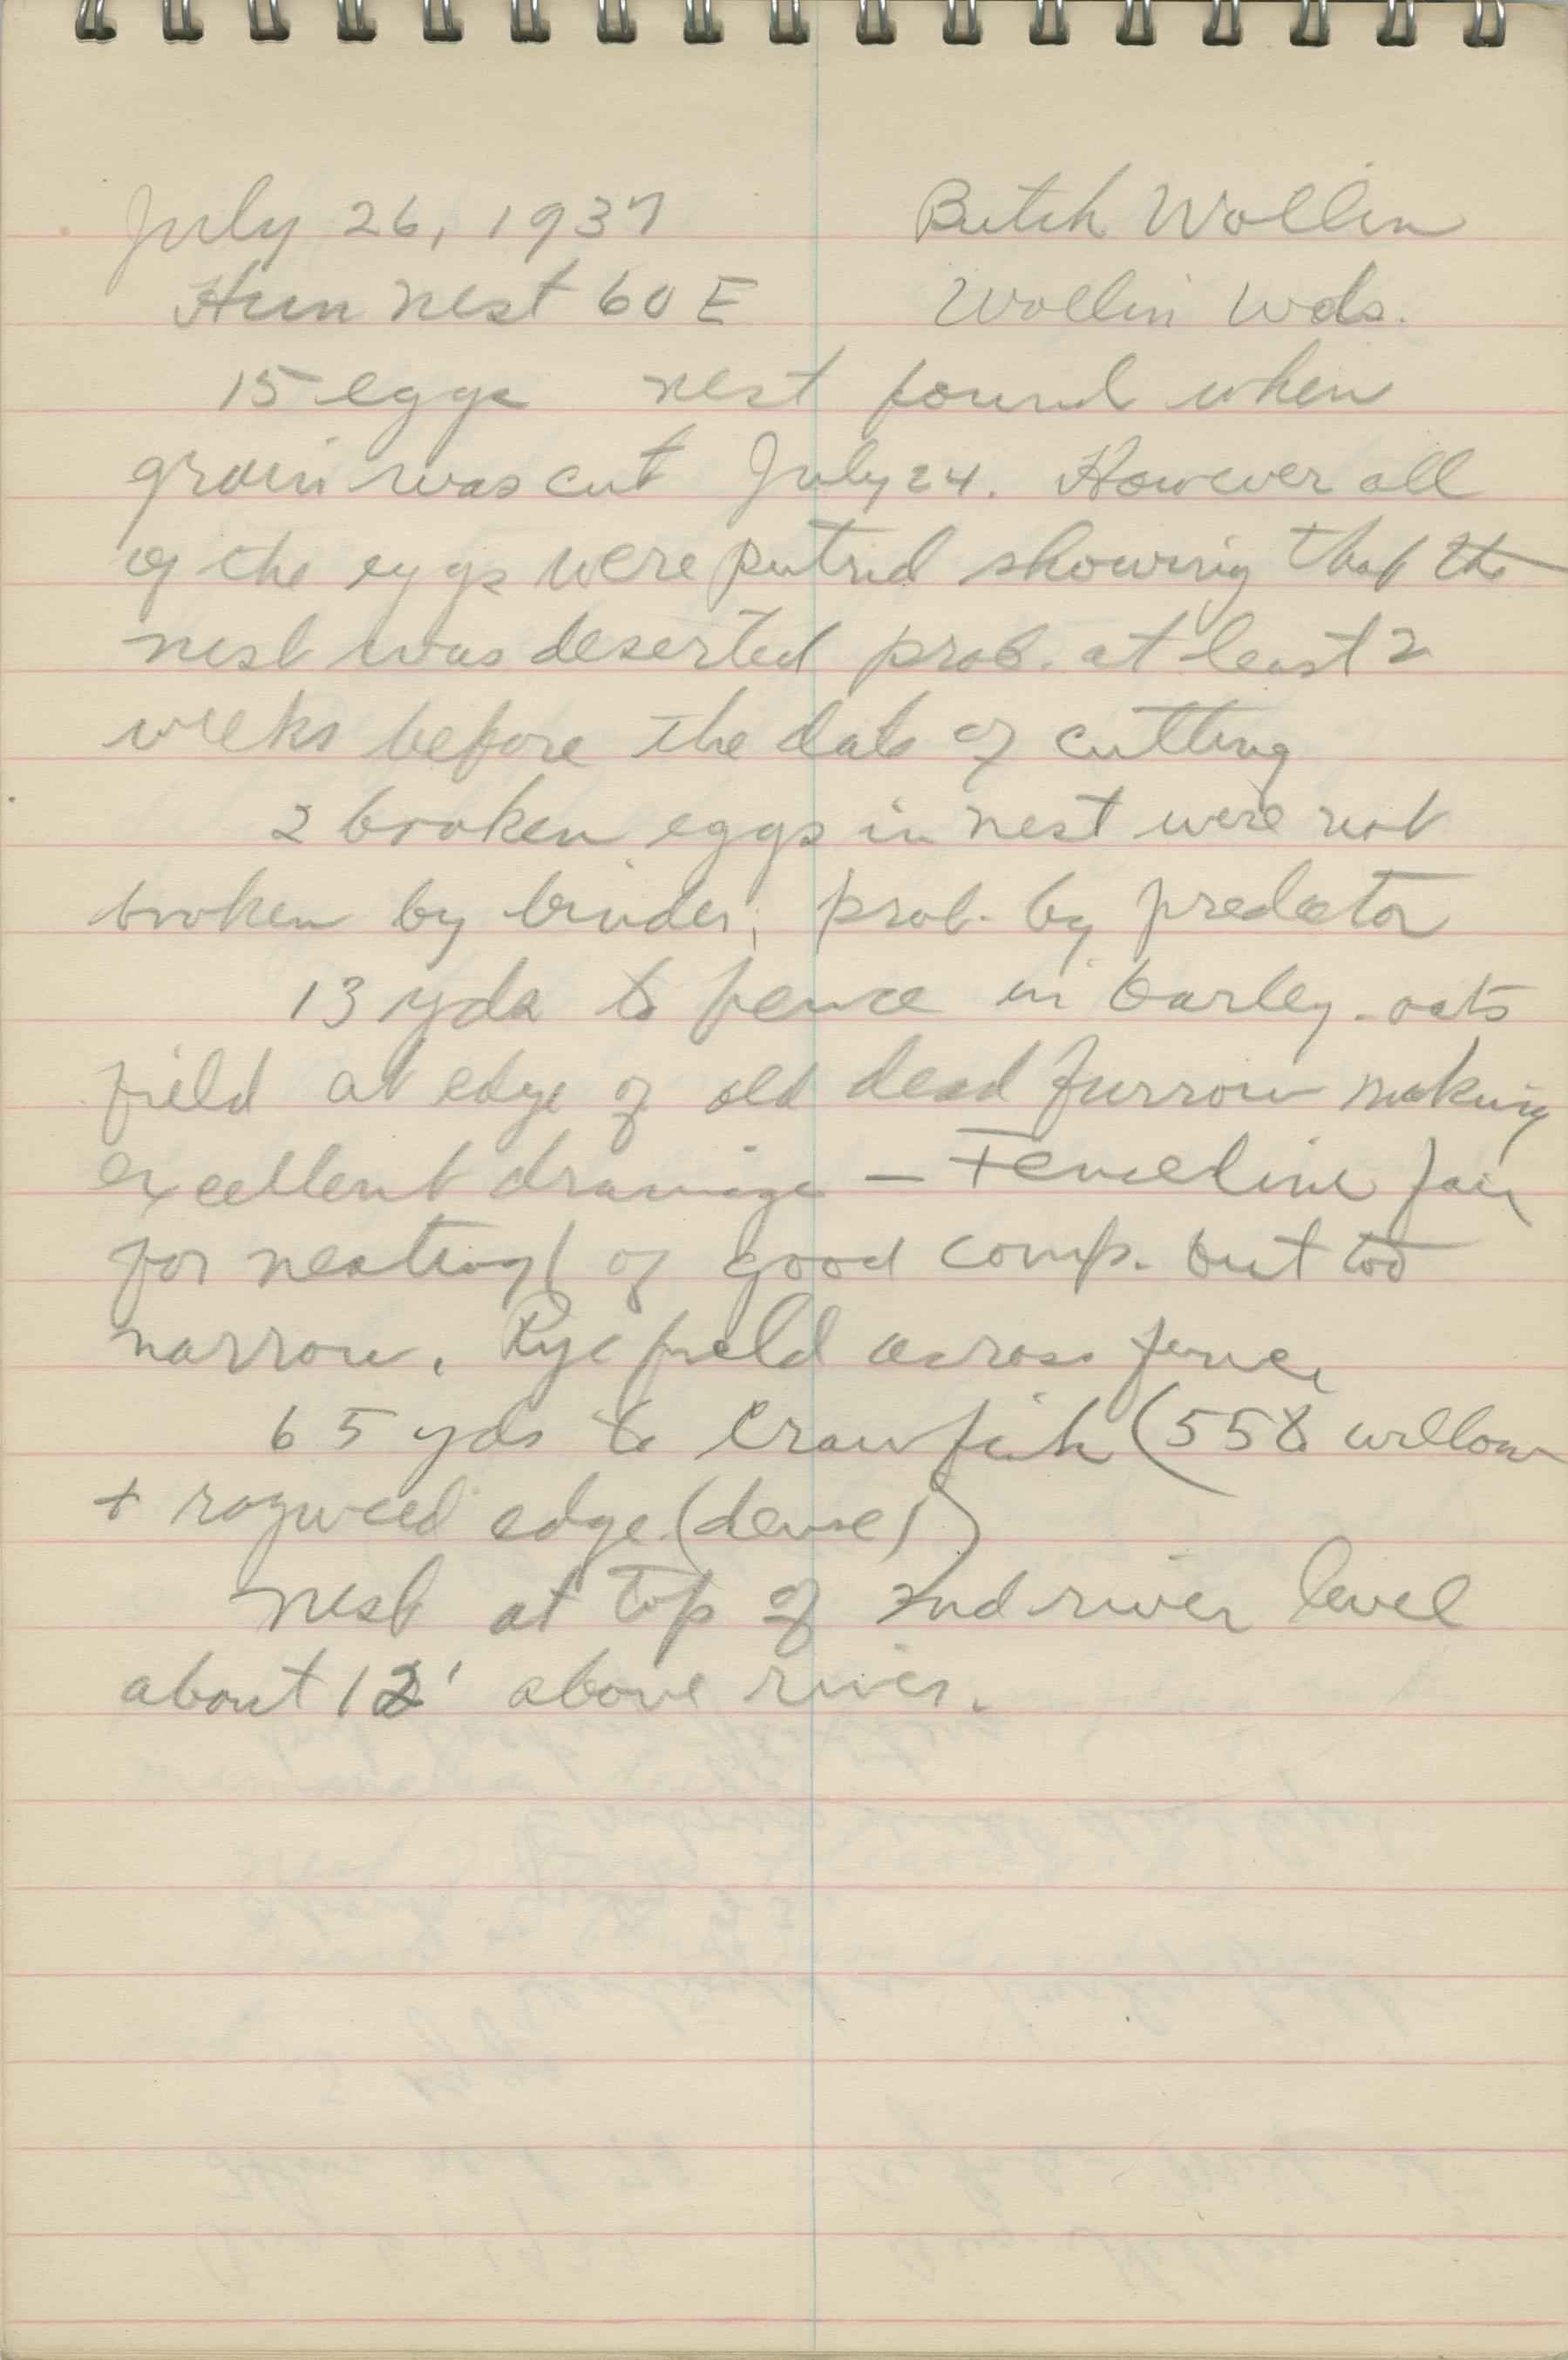 July 26, 1937 Butch Wollin
Hun nest 60 E Wollin Wds.
15 eggs nest found when
grain was cut July 24. However all
of the eggs were putrid showing that the
nest was deserted prob. at least 2
weeks before the date of cutting
2 broken eggs in nest were not
broken by binder; prob. by predator
13 yds to fence in barley-oats
field at edge of old dead furrow making
excellent drainage — Fenceline fair
for nesting of good comp. but too
narrow. Rye field across fence,
65 yds to Crawfish (55 to willow
+ ragweed edge (dense))
Nest at top of 2nd river level
about 12' above river.